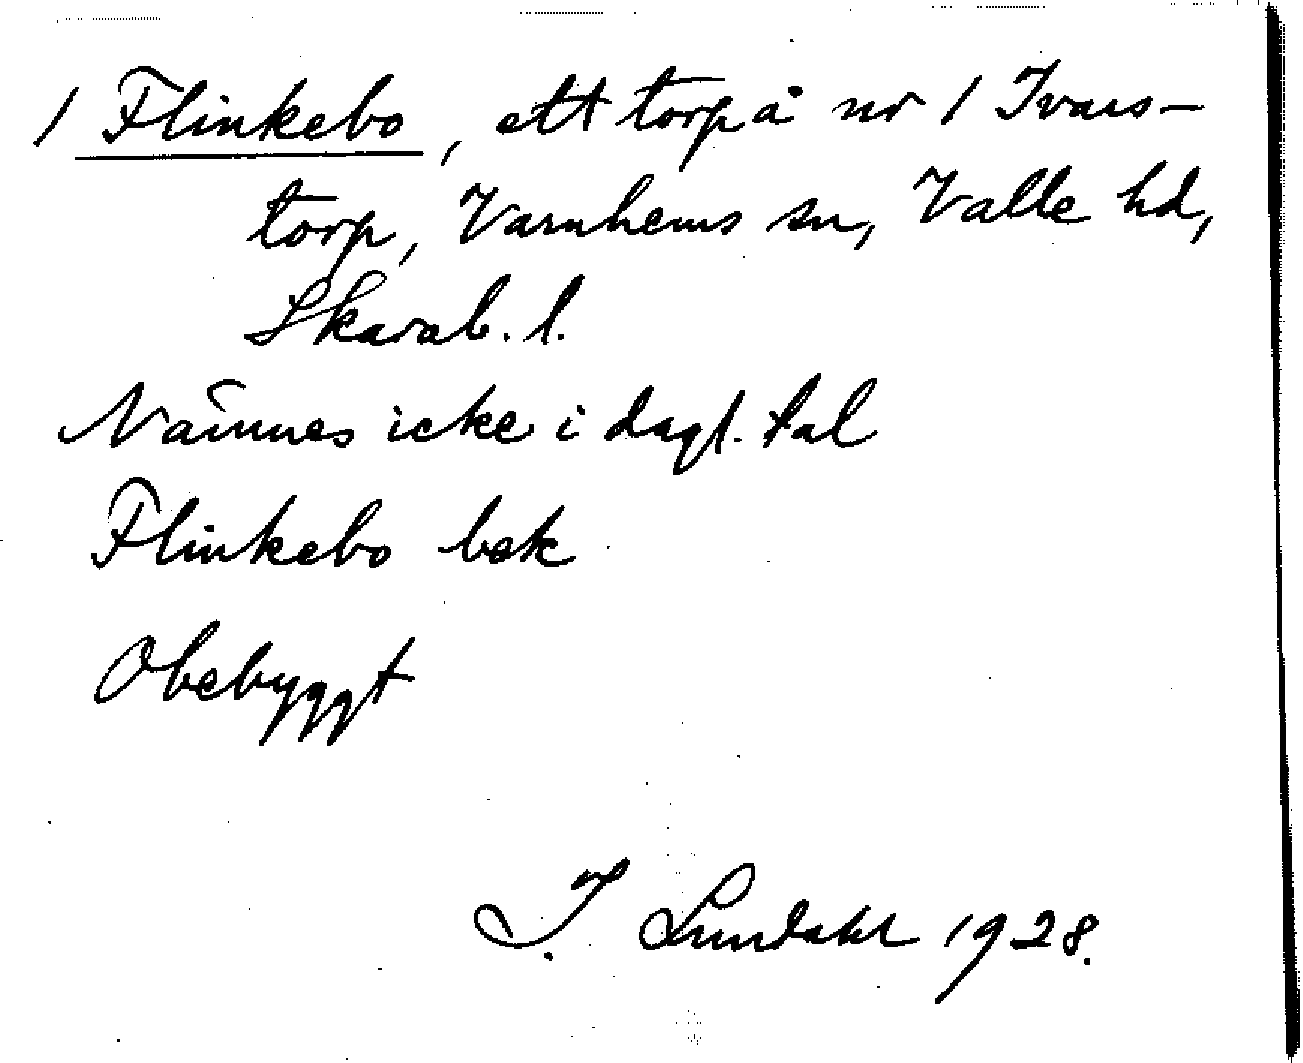 1 Flinkebo, ett torp å nr 1 Ivars-
torp, Varnhems sn, Valle hd,
Skarab. l.
Nämnes icke i dagl. tal
Flinkebo bek
Obebyggt
I. Lundahl 1928.